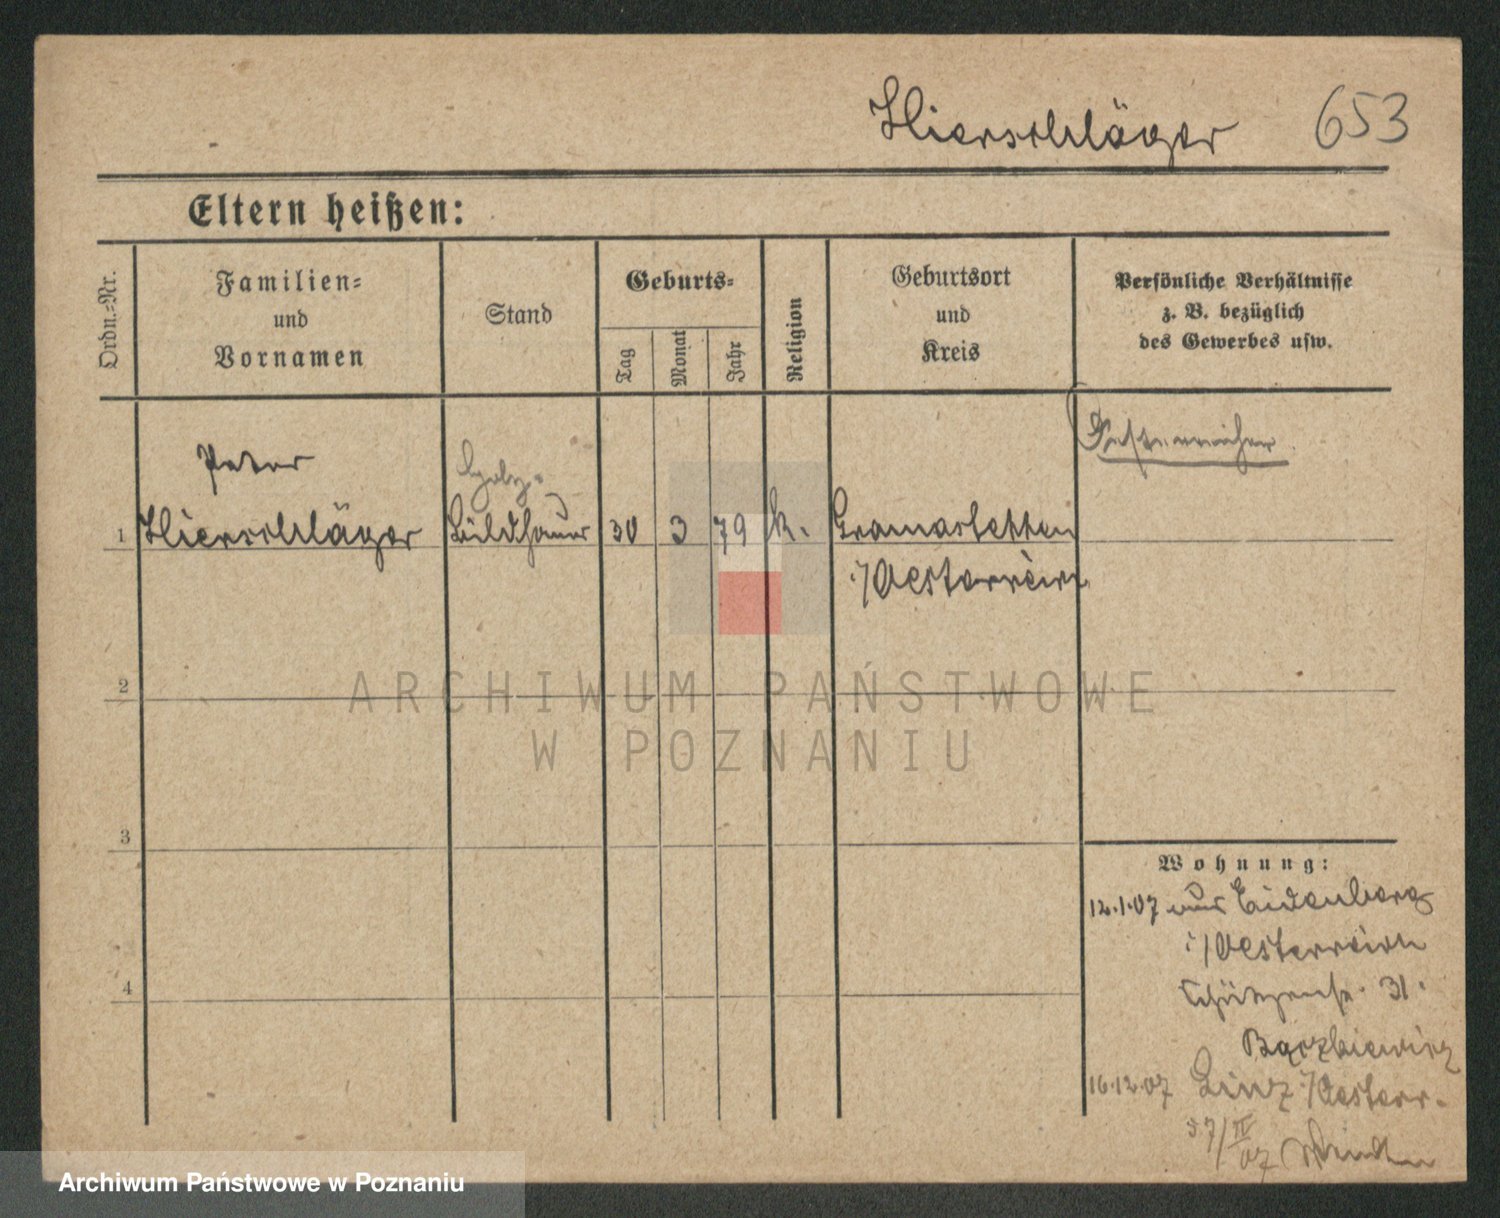 Hierschläger 653
Eltern heißen:
Ordn.-Nr.
Familien-
und
Vornamen
Stand
Geburts-
Tag
Monat
Jahr
Religion
Geburtsort
und
Kreis
Persönliche Verhältnisse
z. B. bezüglich
des Gewerbes usw.
Oesterreicher
Peter
Holz-
1 Hierschläger Bildhauer 30 3 79 k. Gramastetten
i/Oesterreich
2
3
4
Wohnung:
12.1.07 aus Eidenberg
i/Oesterreich
Schützenstr. 31.
16.12.07 Linz i/Oesterr.
ARCHIWUM PAŃSTWOWE
W POZNANIU
Archiwum Państwowe w Poznaniu